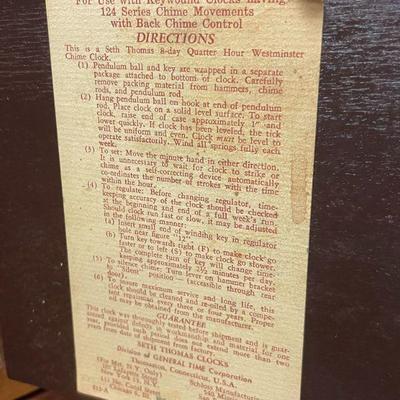 For Use with Keywound Clocks Having
124 Series Chime Movements
with Back Chime Control
DIRECTIONS
This is a Seth Thomas 8-day Quarter Hour Westminster
Chime Clock.
(1) Pendulum ball and key are wrapped in a separate
package attached to bottom of clock. Carefully
remove packing material from hammers, chime
rods, and pendulum rod.
(2) Hang pendulum ball on hook at end of pendulum
rod. Place clock on a solid level surface. To start
clock, raise end of case approximately 1" and
lower quickly. If clock has been leveled, the tick
will be uniform and even. Clock must be level to
operate satisfactorily. Wind all springs fully each
week.
(3) To set: Move the minute hand in either direction.
It is unnecessary to wait for clock to strike or
chime as a self-correcting device automatically
co-ordinates the number of strokes with the time
within the hour.
(4) To regulate: Before changing regulator, time-
keeping accuracy of the clock should be checked
at the beginning and end of a full week's run.
Should clock run fast or slow, it may be adjusted
in the following manner:
(a) Insert small end of winding key in regulator
hole near figure "12".
(b) Turn key towards right (F) to make clock go
faster or to left (S) to make clock go slower.
The complete turn of key will change time-
keeping approximately 2½ minutes per day.
(5) To silence chime: Turn lever on hammer bracket
to "Silent" position — (accessible through rear
door).
(6) To insure maximum service and long life, this
clock should be cleaned and re-oiled by a compe-
tent repairman every three or four years. Proper
oil may be obtained from the manufacturer.
GUARANTEE
This clock was thoroughly tested before shipment and is guar-
anteed against defects in workmanship and material for one
year. This guarantee does not extend more than two
years from date of shipment from factory.
SETH THOMAS CLOCKS
Division of GENERAL TIME Corporation
Thomaston, Connecticut, U.S.A.
(For Met. N.Y. Only)
Schloss Manufacturing